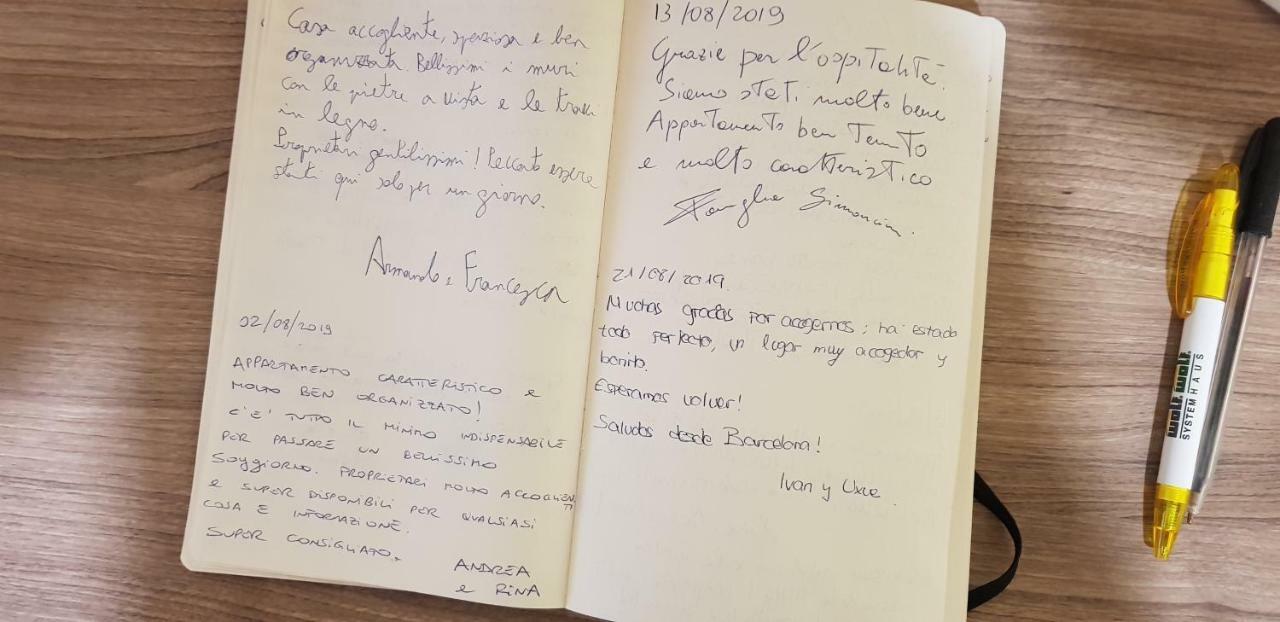 Casa accogliente, spaziosa e ben
organizzata. Bellissimi i muri
con le pietre a vista e le travi
in legno.
Proprietari gentilissimi! Peccato essere
stati qui solo per un giorno.
Armando e Francesca
02/08/2019
APPARTAMENTO CARATTERISTICO e
MOLTO BEN ORGANIZZATO!
C'E' TUTTO IL MINIMO INDISPENSABILE
PER PASSARE UN BELLISSIMO
SOGGIORNO. PROPRIETARI MOLTO ACCOGLIENTI
e SUPER DISPONIBILI PER QUALSIASI
COSA E INFORMAZIONE.
SUPER CONSIGLIATO.
ANDREA
e RINA
13/08/2019
Grazie per l'ospitalità.
Siamo stati molto bene
Appartamento ben tenuto
e molto caratteristico
Famiglia Simoncini
21/08/2019
Muchas gracias por acogernos; ha estado
todo perfecto, un lugar muy acogedor y
bonito.
Esperamos volver!
Saludos desde Barcelona!
Ivan y
wolf wolf
SYSTEMHAUS